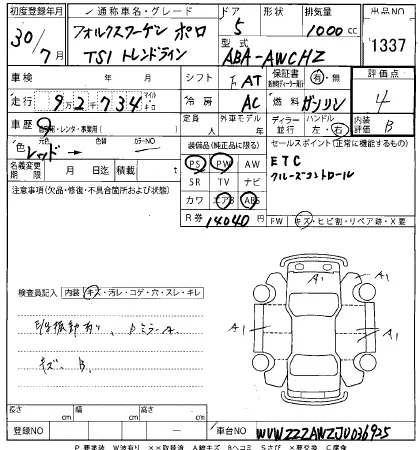 初度登録年月 通称車名・グレード ドア 形状 排気量 出品NO
30/7月 フォルクスワーゲン ポロ 5 1000cc 1337
TSI トレンドライン 型式 ABA-AWCHZ
車検 年 月 シフト AT 保証書 有・無 評価点
走行 92734 マイル キロ 冷房 AC 燃料 ガソリン 4
車歴 レンタ・事業用 定員 人 外車モデル 年 ディーラー 並行 ハンドル 左・右 内装評価 B
色 レッド→ 元色 色替 カラーNO 装備品(純正品に限る) セールスポイント(正常に機能するもの)
名義変更期限 月 日迄 積載 PS PW AW ETC
SR TV ナビ クルーズコントロール
注意事項(欠品・修復・不具合箇所および状態) カワ エアB ABS
R券 14040円 FW キズ・ヒビ割・リペア跡・X要
検査員記入 内装 キズ・汚レ・コゲ・穴・スレ・キレ
A1 A1
A1 A1
ミラーA
キズ B
長さ cm 幅 cm 高さ cm
登録NO 車台NO WVWZZZAWZJU036925
P 要塗装 W波有り ××取替済 A線キズ Bヘコミ Sさび ×要交換 C腐食